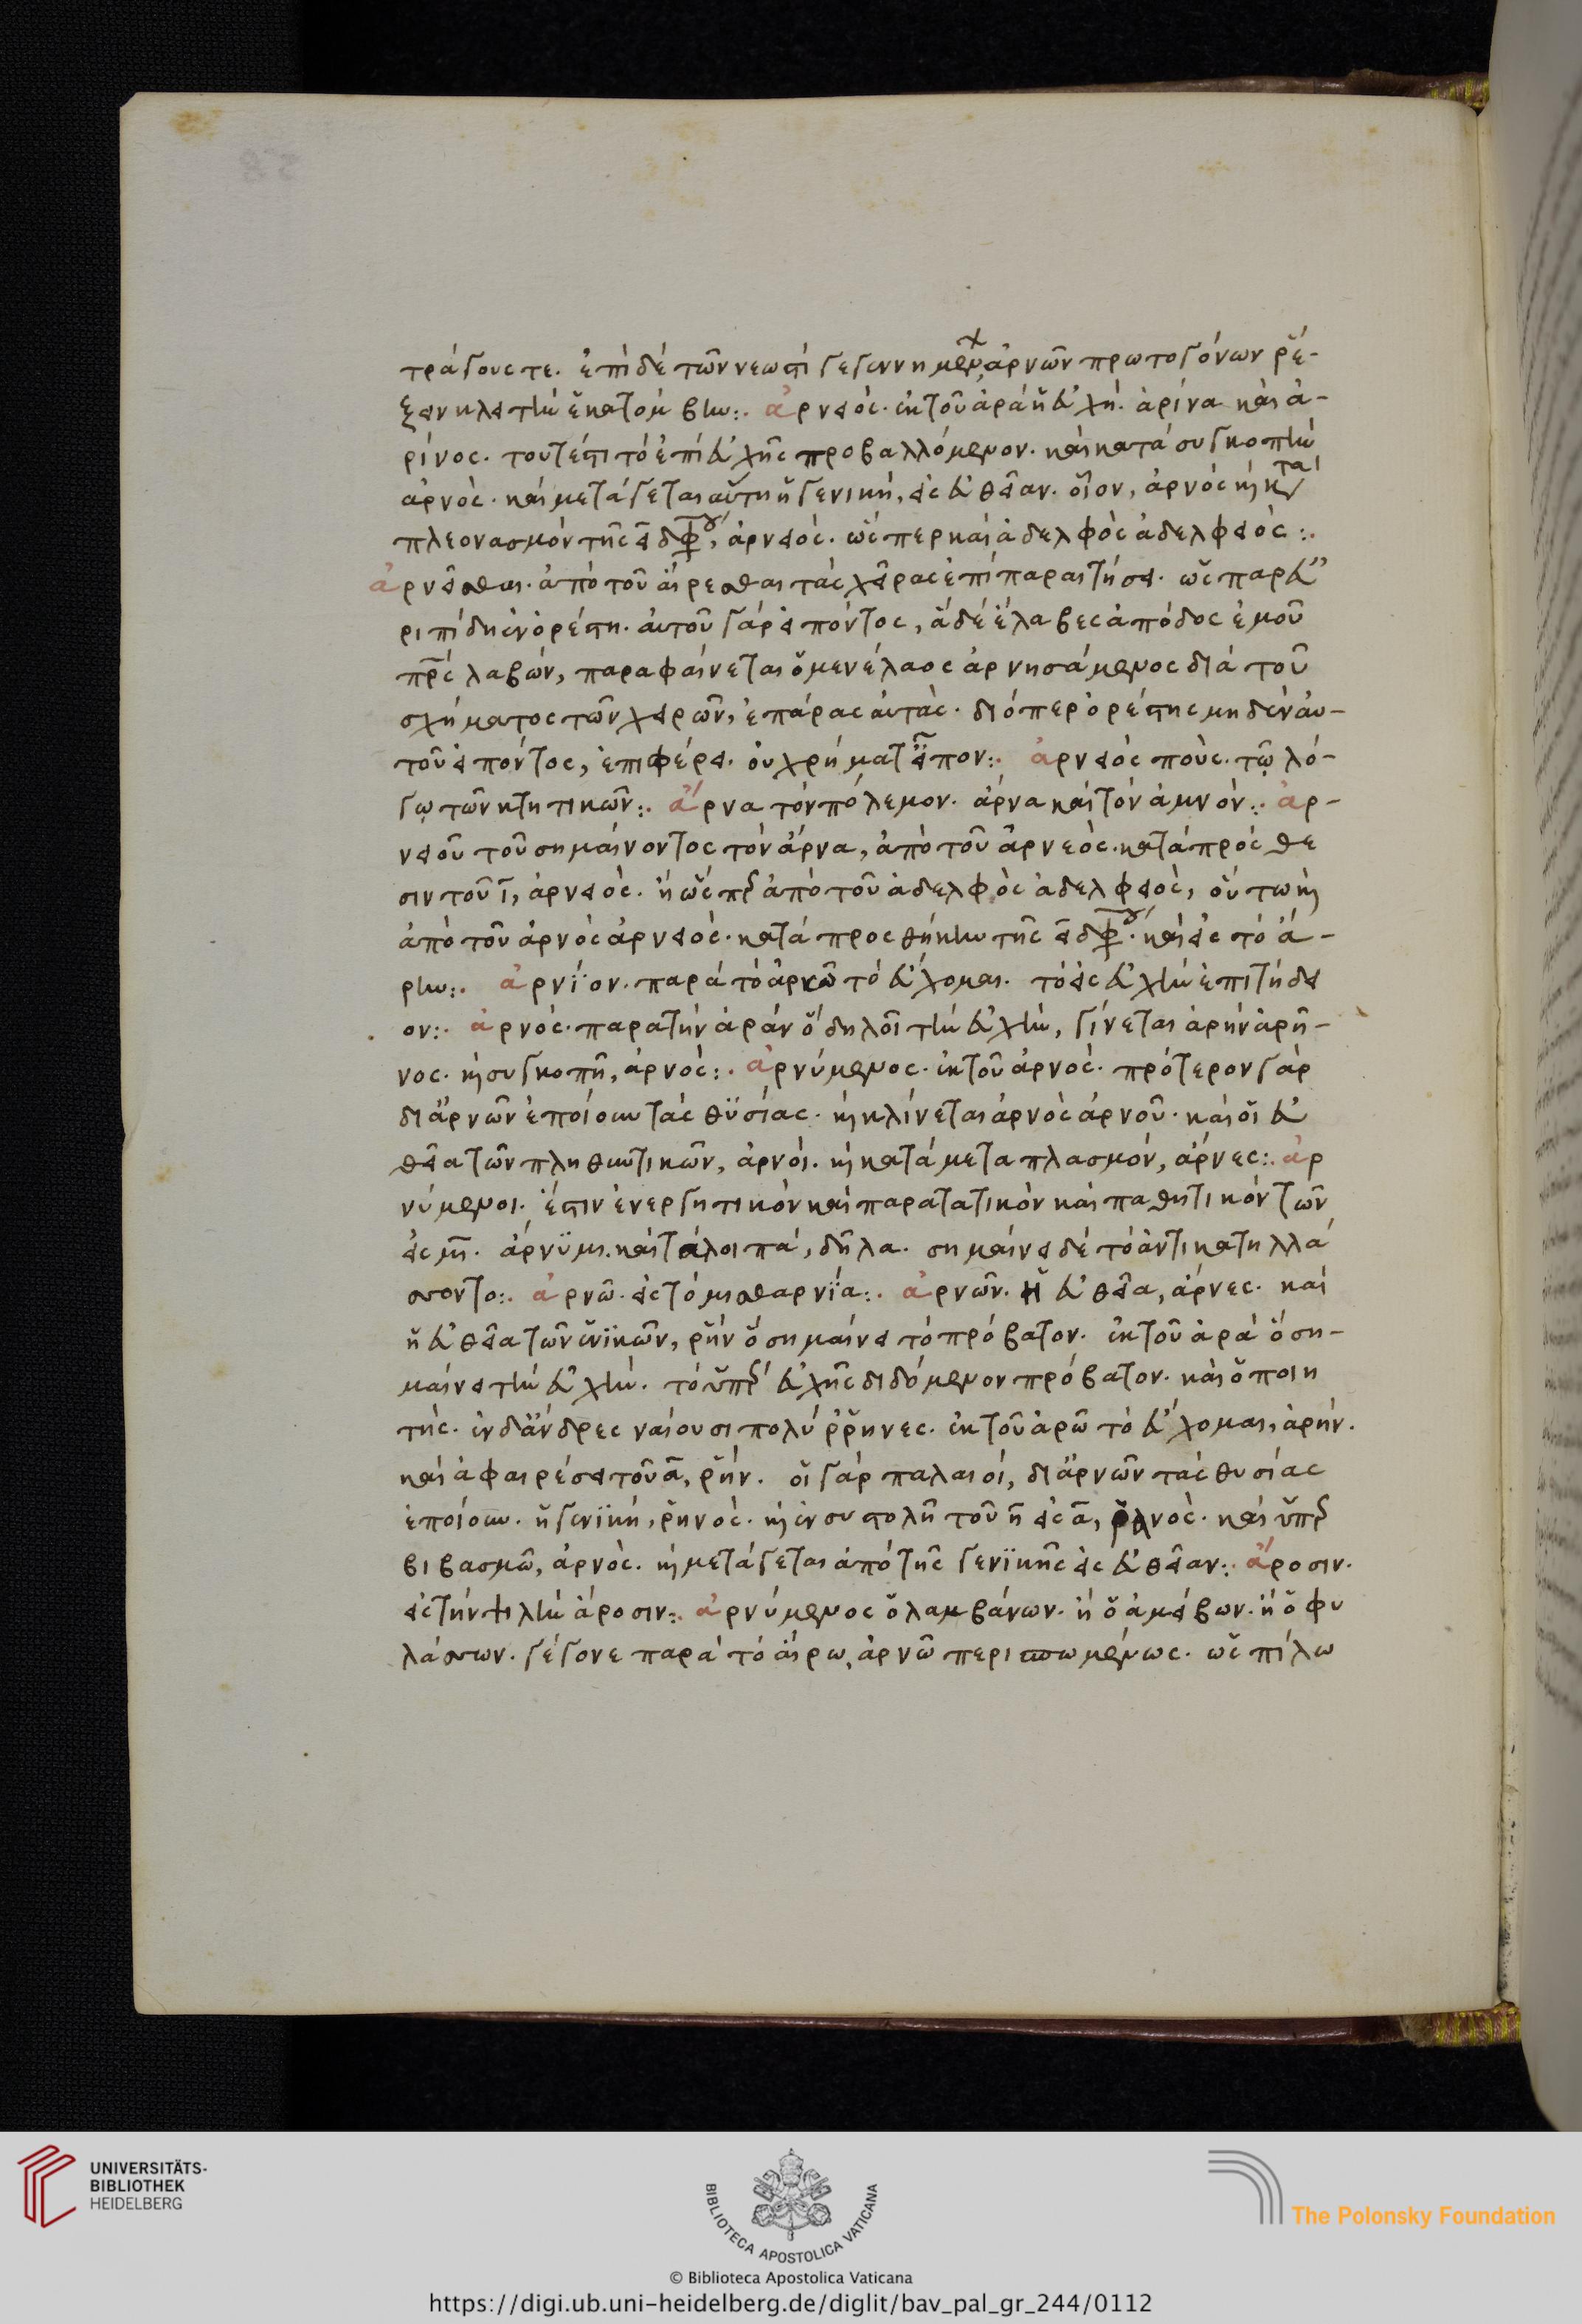 τράγους τε. ἐπὶ δὲ τῶν νεωστὶ γεγεννημένων ἀρνῶν πρωτογόνων ῥέ-
ξειν κλειτὴν ἑκατόμβην:. ἀρνειός. ἐκ τοῦ ἀρὰ ἡ εὐχή. ἀρίνα καὶ ἀ-
ρίνος. τουτέστι τὸ ἐπὶ εὐχῆς προβαλλόμενον. καὶ κατὰ συγκοπὴν
ἀρνός. καὶ μετάγεται αὕτη ἡ γενική, εἰς εὐθεῖαν. οἷον, ἀρνός καὶ κατὰ
πλεονασμὸν τῆς ει διφθόγγου, ἀρνειός. ὥσπερ καὶ ἀδελφός ἀδελφειός:.
ἀρνεῖσθαι. ἀπὸ τοῦ αἴρεσθαι τὰς χεῖρας ἐπὶ παραιτήσει. ὡς παρ εὐ
ριπίδη ἐν ὀρέστη. αὐτοῦ γὰρ εἰπόντος, ἃ δὲ ἔλαβες ἀπόδος ἐμοῦ
πρς λαβών, παραφαίνεται ὁ μενέλαος ἀρνησάμενος διὰ τοῦ
σχήματος τῶν χειρῶν, ἐπάρας αὐτάς. διόπερ ὀρέστης μηδὲν αὐ-
τοῦ εἰπόντος, ἐπιφέρει. οὐ χρήματ εἶπον:. ἀρνειός πούς. τῷ λό-
γῳ τῶν κτητικῶν:. ἄρνα τὸν πόλεμον. ἄρνα καὶ τὸν ἀμνόν:. ἀρ-
νειοῦ τοῦ σημαίνοντος τὸν ἄρνα, ἀπὸ τοῦ ἀρνεός. κατὰ πρόσθε
σιν τοῦ ι, ἀρνειός. ἢ ὥσπερ ἀπὸ τοῦ ἀδελφός ἀδελφειός, οὕτω καὶ
ἀπὸ τοῦ ἀρνός ἀρνειός. κατὰ προσθήκην τῆς ει διφθόγγου. καὶ εἰς τὸ ἀ-
ρην:. ἀρνίον. παρὰ τὸ ἀρῶ τὸ εὔχομαι. τὸ εἰς εὐχὴν ἐπιτήδει
ον:. ἀρνός. παρὰ τὴν ἀρὰν ὃ δηλοῖ τὴν εὐχὴν, γίνεται ἀρήν ἀρῆ-
νος. καὶ συγκοπῇ, ἀρνός:. ἀρνύμενος. ἐκ τοῦ ἀρνός. πρότερον γὰρ
δι ἀρνῶν ἐποίουν τὰς θυσίας. καὶ κλίνεται ἀρνός ἀρνοῦ. καὶ οἱ εὐ
θεῖα τῶν πληθυντικῶν, ἀρνοί. καὶ κατὰ μεταπλασμόν, ἄρνες:. ἀρ
νύμενοι. ἔστιν ἐνεργητικὸν καὶ παρατατικὸν καὶ παθητικὸν τῶν
εἰς μι. ἄρνυμι. καὶ τὰ λοιπά, δῆλα. σημαίνει δὲ τὸ ἀντικατηλλά
σσοντο:. ἀρνῶ. εἰς τὸ μισθαρνία:. ἀρνῶν. ἡ εὐθεῖα, ἄρνες. καὶ
ἡ εὐθεῖα τῶν ἑνικῶν, ῥήν ὃ σημαίνει τὸ πρόβατον. ἐκ τοῦ ἀρὰ ὃ ση-
μαίνει τὴν εὐχήν. τὸ ὑπὲρ εὐχῆς διδόμενον πρόβατον. καὶ ὁ ποιη
τής. ἐν δ ἄνδρες ναίουσι πολύρρηνες. ἐκ τοῦ ἀρῶ τὸ εὔχομαι, ἀρήν.
καὶ ἀφαιρέσει τοῦ α, ῥήν. οἱ γὰρ παλαιοί, δι ἀρνῶν τὰς θυσίας
ἐποίουν. ἡ γενική, ῥηνός. καὶ ἐν συστολῇ τοῦ η εἰς α, ῥανός. καὶ ὑπερ
βιβασμῷ, ἀρνός. καὶ μετάγεται ἀπὸ τῆς γενικῆς εἰς εὐθεῖαν:. ἄροσιν.
εἰς τὴν ψιλὴν ἄροσιν:. ἀρνύμενος ὁ λαμβάνων. ἢ ὁ ἀμείβων. ἢ ὁ φυ
λάσσων. γέγονε παρὰ τὸ αἴρω, ἀρνῶ περισπωμένως. ὡς πίλω
UNIVERSITÄTS-
BIBLIOTHEK
HEIDELBERG
BIBLIOTECA APOSTOLICA VATICANA
The Polonsky Foundation
© Biblioteca Apostolica Vaticana
https://digi.ub.uni-heidelberg.de/diglit/bav_pal_gr_244/0112